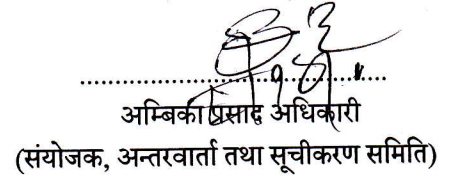 अम्बिका प्रसाद अधिकारी
(संयोजक, अन्तरवार्ता तथा सूचीकरण समिति)